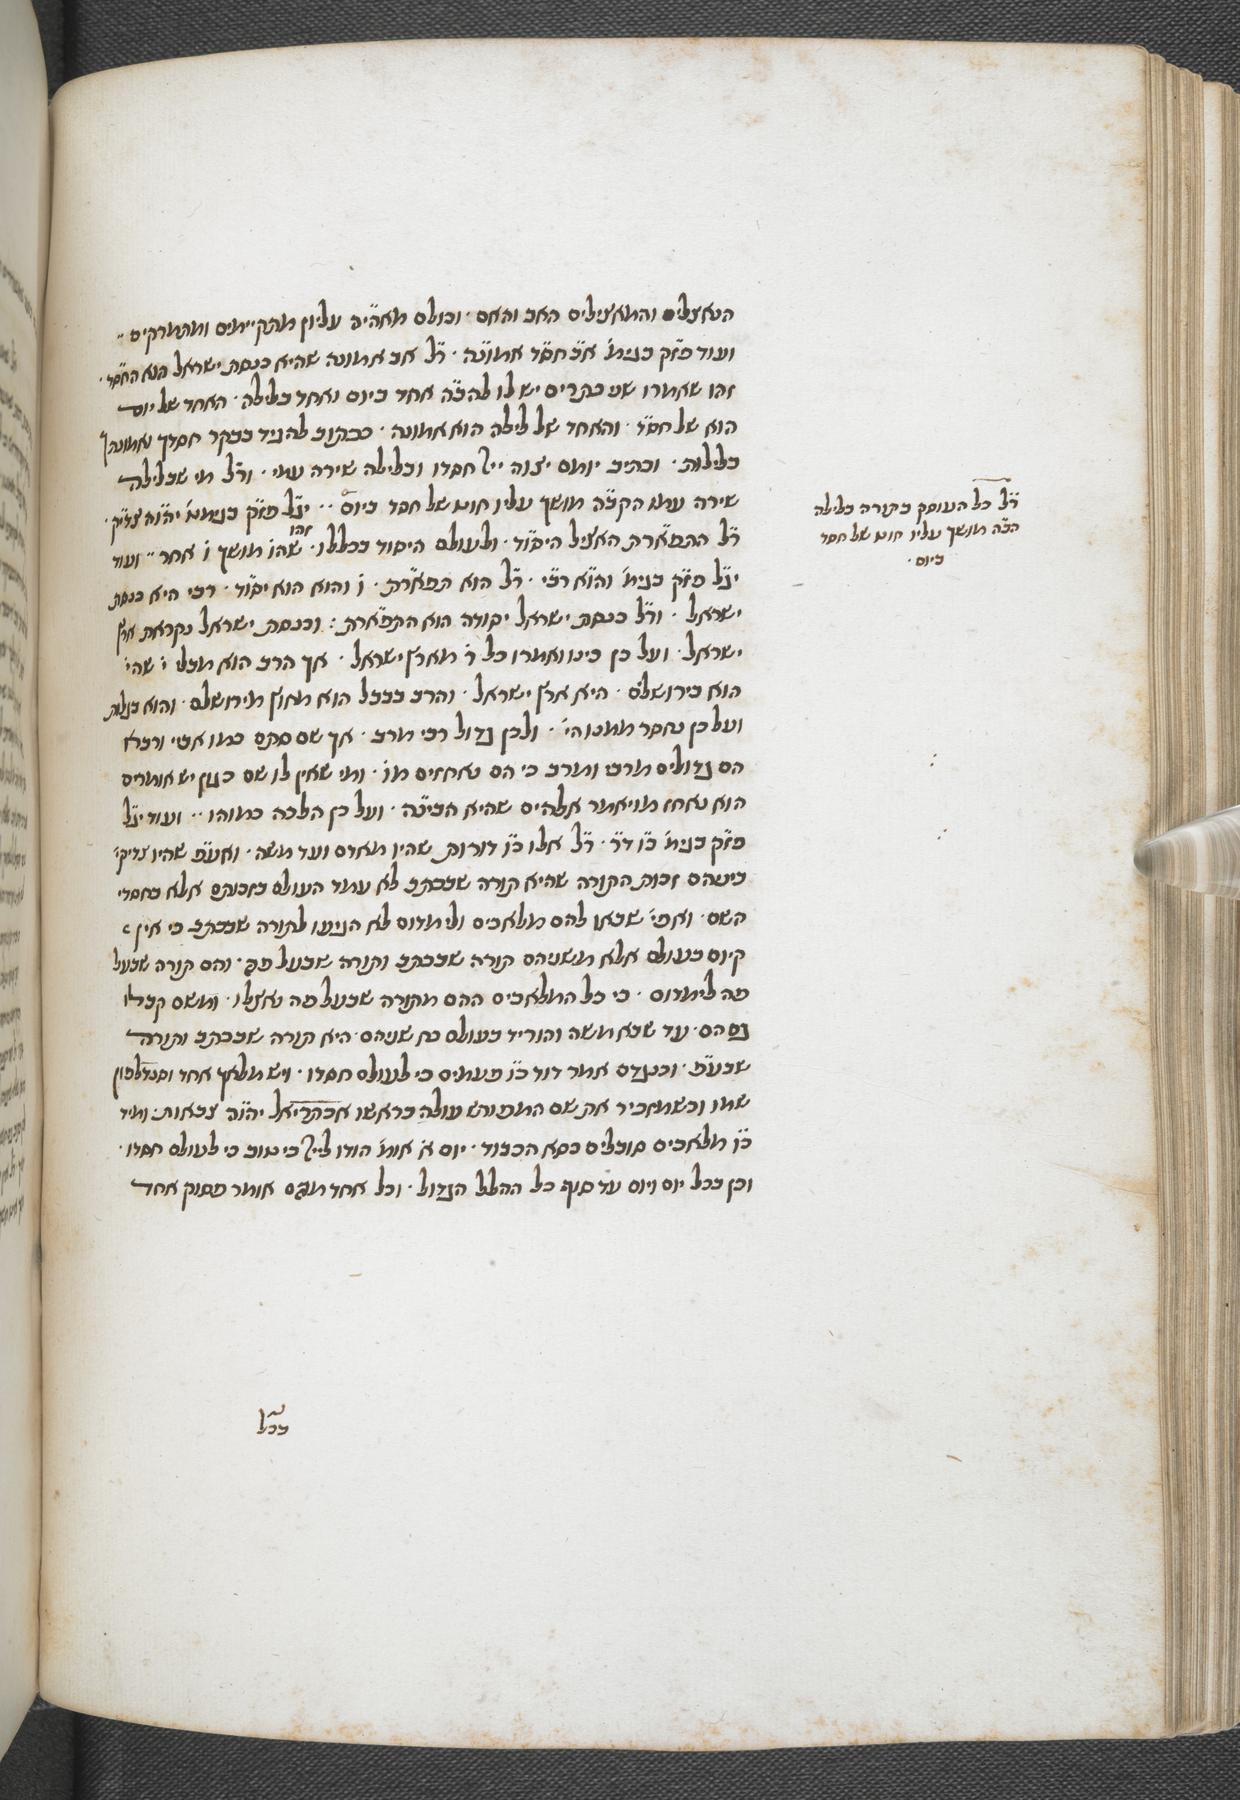 הנאצלים והמאצילים האב והאם · וכולם מאה״יה עליון מתקיימים ומתברכים ··
ועוד פז״ק בגימ׳ א״ב חס״ד אמונ״ה · ר״ל אב אמונה שהיא כנסת ישראל הוא החס״ד ·
זהו שאמרו שני כתרים יש לו להב״ה אחד ביום ואחד בלילה · האחד של יום
הוא של חס״ד · והאחד של לילה הוא אמונה · ככתוב להגיד בבקר חסדך ואמונתך
בלילות · וכתיב יומם יצוה ייי חסדו ובלילה שירה עמי · ור״ל מי שבלילה
שירה עמו הקב״ה מושך עליו חוט של חסד ביום ·· ינ״ל פז״ק בגימט׳ יהו״ה צדי״ק ·
ר״ל התפארת האציל היסו״ד · ולעולם היסוד בכללו · זהו שהו׳ מושך ו׳ אחר ·· ועוד
ינ״ל פז״ק בגימ׳ והו״א רב״י · ר״ל הוא תפארת · ו׳ והוא הוא יסו״ד · רבי היא כנסת
ישראל · ור״ל כנסת ישראל יסודה הוא התפארת : וכנסת ישראל נקראת ארץ
ישראל · ועל כן כינו ואמרו כל ר׳ מארץ ישראל · אך הרב הוא מבלי י׳ שהי׳
הוא בירושלם · היא ארץ ישראל · והרב בבבל הוא מחוץ מירושלם · והוא בגלות
ועל כן נחסר ממנו הי׳ · ולכן גדול רבי מרב · אך שם סתם כמו אביי ורבא
הם גדולים מרבי ומרב כי הם נאחזים מו׳ · ומי שאין לו שם כגון יש אומרים
הוא נאחז מויאמר אלהים שהיא הבינה · ועל כן הלכה כמוהו ·· ועוד ינ״ל
פז״ק בגימ׳ כ״ו ד״ר · ר״ל אלו כ״ו דורות שהיו מאדם ועד משה · ואע״פ שהיו צדיקי׳
ביניהם זכות התורה שהיא תורה שבכתב לא עמד העולם בזכותם אלא בחסדי
השם · ואפי׳ שבאו להם מלאכים ולימדום לא הגיעו לתורה שבכתב כי אין
קיום בעולם אלא משניהם תורה שבכתב ותורה שבעל פה · והם תורה שבעל
פה לימדום · כי כל המלאכים ההם מתורה שבעל פה נאצלו · ומשם קבלו
גם הם · עד שבא משה והוריד בעולם כח שניהם · היא תורה שבכתב ותורה
שבע״פ · וכנגדם אמר דוד כ״ו פעמים כי לעולם חסדו · ויש מלאך אחד וסנדלפון
שמו וכשמזכיר את שם המפורש עולה בראשו אכתריאל יהו״ה צבאות · ומיד
כ״ו מלאכים סובלים כסא הכבוד · יום א׳ אומ׳ הודו לייי כי טוב כי לעולם חסדו ·
וכן בכל יום ויום עד סוף כל ההלל הגדול · וכל אחד מהם אומר פסוק אחד
בכל
ר״ל כל העוסק בתורה בלילה
הב״ה מושך עליו חוט של חסד
ביום ·